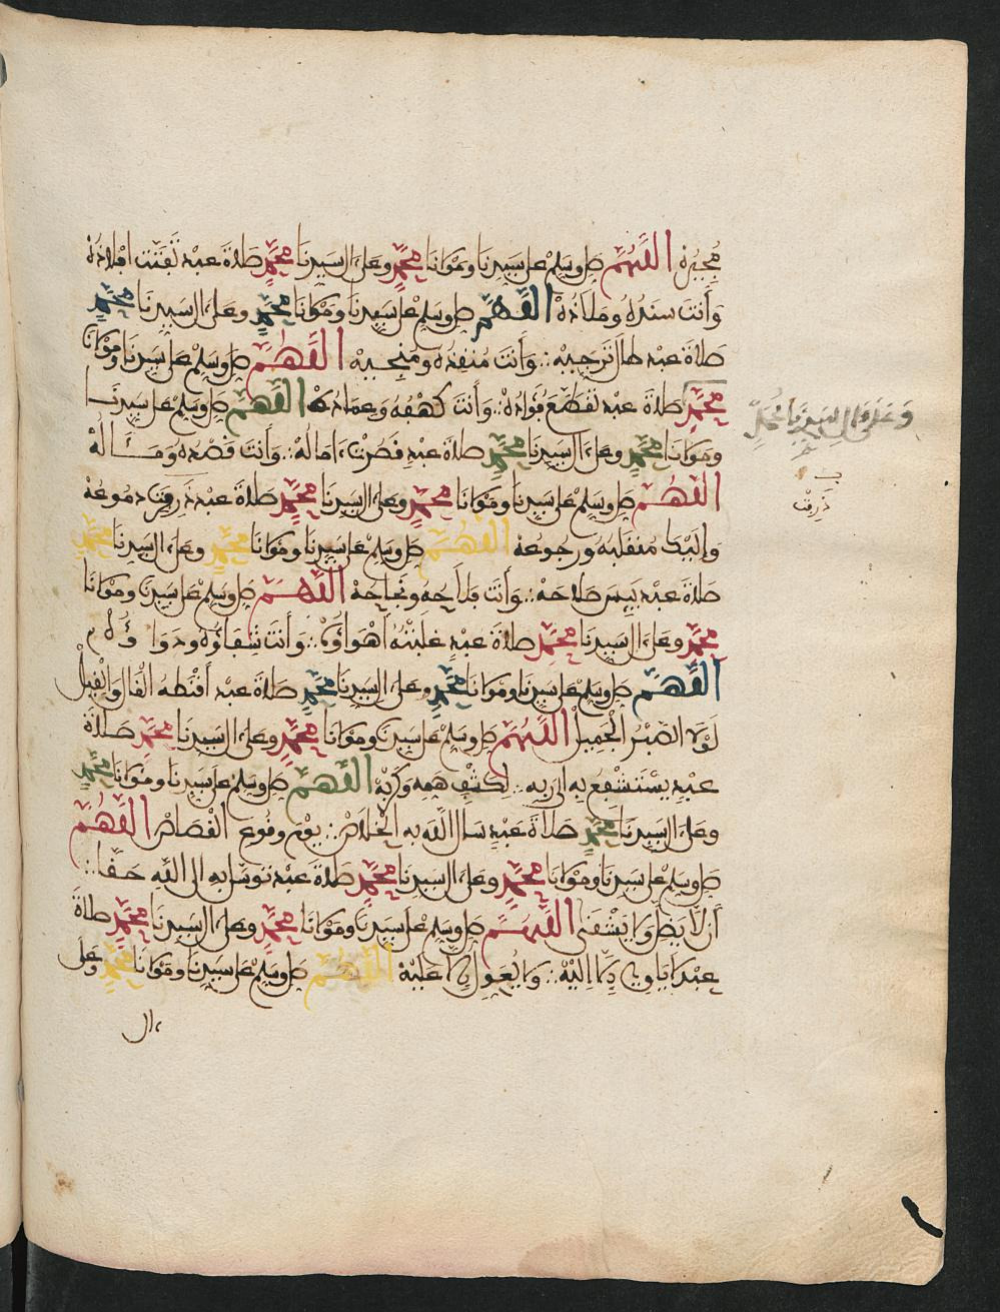 مُجِيرُهُ اللَّهُمَّ صل وسلم على سيدنا ومولانا محمد وعلى ءال سيدنا محمد صلاة عبد تفتت افلاذه
وأنت سنده وملاذه اللَّهُمَّ صل وسلم على سيدنا ومولانا محمد وعلى ءال سيدنا محمد
صلاة عبد طال ترجيه وأنت منقذه ومنجيه اللَّهُمَّ صل وسلم على سيدنا ومولانا
محمد صلاة عبد تقطع فؤاده وأنت كهفه وعماده اللَّهُمَّ صل وسلم على سيدنا
ومولانا محمد وعلى ءال سيدنا محمد صلاة عبد قصرت ءاماله وأنت قصده ومـــاله
اللَّهُمَّ صل وسلم على سيدنا ومولانا محمد وعلى ءال سيدنا محمد صلاة عبد ذرفت دموعه
وإليك منقلبه ورجوعه اللَّهُمَّ صل وسلم على سيدنا ومولانا محمد وعلى ءال سيدنا محمد
صلاة عبد صلاحه وأنت فلاحه ونجاحه اللَّهُمَّ صل وسلم على سيدنا ومولانا
محمد وعلى ءال سيدنا محمد صلاة عبد غلبته أهواؤه وأنت شفاؤه ودواؤه
اللَّهُمَّ صل وسلم على سيدنا ومولانا محمد وعلى ءال سيدنا محمد صلاة عبد القال والقيل
لولا الصبر الجميل اللَّهُمَّ صل وسلم على سيدنا ومولانا محمد وعلى ءال سيدنا محمد صلاة
عبد يستشفع به إلى ربه لكشف همه وكربه اللَّهُمَّ صل وسلم على سيدنا ومولانا محمد
وعلى ءال سيدنا محمد صلاة عبد سال الله به الخلاص يوم وقوع القصاص اللَّهُمَّ
صل وسلم على سيدنا ومولانا محمد وعلى ءال سيدنا محمد صلاة عبد توسل به إلى الله حقا
أن لا يضل ولا يشقى اللَّهُمَّ صل وسلم على سيدنا ومولانا محمد وعلى ءال سيدنا محمد صلاة
عبد لا ياوي إلا إليه ولا يعول إلا عليه اللَّهُمَّ صل وسلم على سيدنا ومولانا محمد وعلى
ءال
وعلى ءال سيدنا محمد
ذرفت